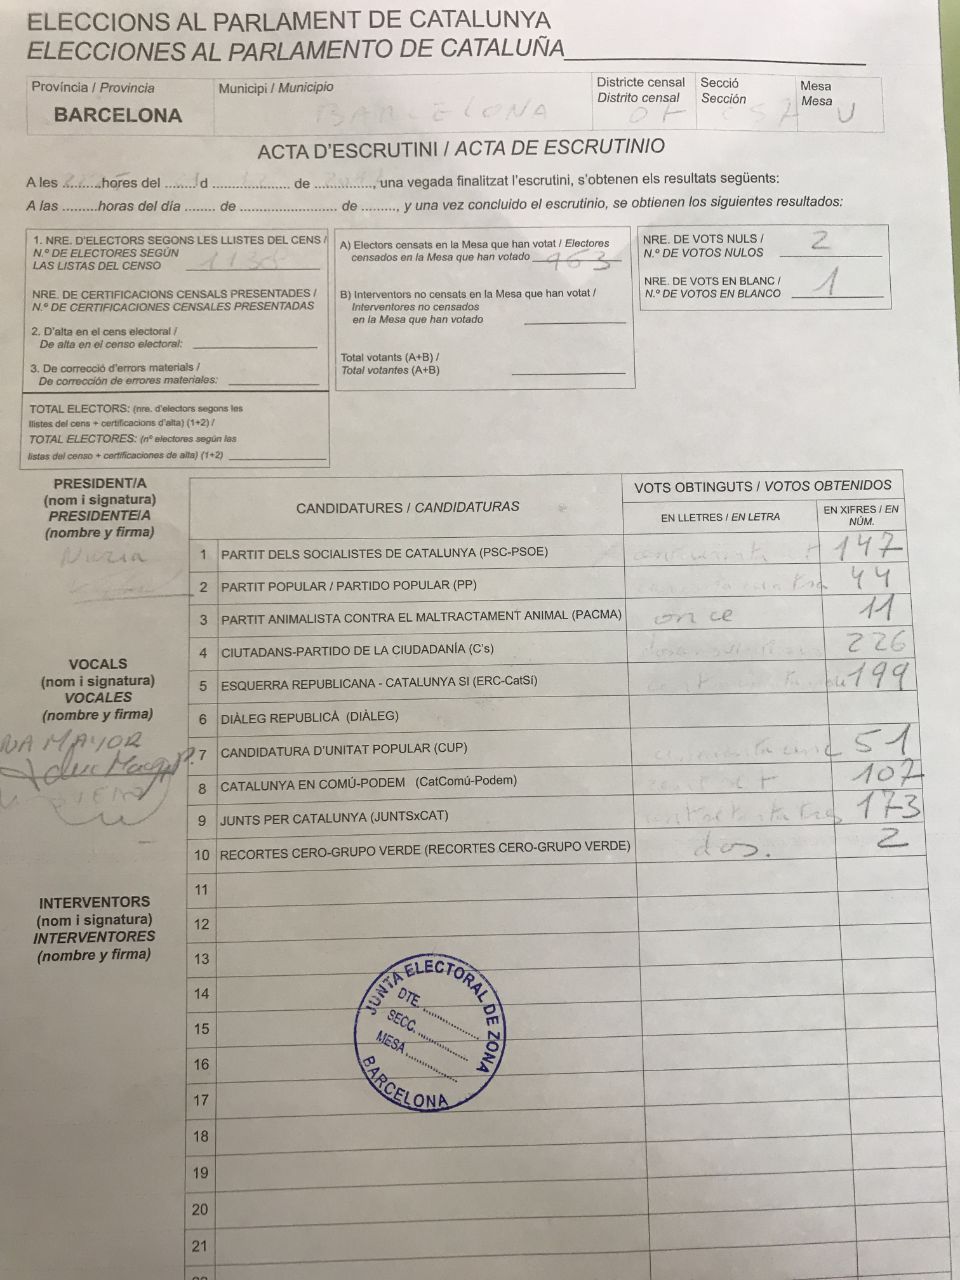 ELECCIONS AL PARLAMENT DE CATALUNYA
ELECCIONES AL PARLAMENTO DE CATALUÑA
Província / Provincia
BARCELONA
Municipi / Municipio
BARCELONA
Districte censal
Distrito censal
Secció
Sección
Mesa
Mesa
U
ACTA D'ESCRUTINI / ACTA DE ESCRUTINIO
A les .........hores del ........d .................... de ..............., una vegada finalitzat l'escrutini, s'obtenen els resultats següents:
A las .........horas del día ........ de ......................... de ........., y una vez concluido el escrutinio, se obtienen los siguientes resultados:
1. NRE. D'ELECTORS SEGONS LES LLISTES DEL CENS /
N.º DE ELECTORES SEGÚN
LAS LISTAS DEL CENSO
NRE. DE CERTIFICACIONS CENSALS PRESENTADES /
N.º DE CERTIFICACIONES CENSALES PRESENTADAS
2. D'alta en el cens electoral /
De alta en el censo electoral:
3. De correcció d'errors materials /
De corrección de errores materiales:
TOTAL ELECTORS: (nre. d'electors segons les
llistes del cens + certificacions d'alta) (1+2) /
TOTAL ELECTORES: (nº electores según las
listas del censo + certificaciones de alta) (1+2)
A) Electors censats en la Mesa que han votat / Electores
censados en la Mesa que han votado 963
B) Interventors no censats en la Mesa que han votat /
Interventores no censados
en la Mesa que han votado
Total votants (A+B) /
Total votantes (A+B)
NRE. DE VOTS NULS /
N.º DE VOTOS NULOS 2
NRE. DE VOTS EN BLANC /
N.º DE VOTOS EN BLANCO 1
PRESIDENT/A
(nom i signatura)
PRESIDENTE/A
(nombre y firma)
Nuria
VOCALS
(nom i signatura)
VOCALES
(nombre y firma)
NA MAYOR
INTERVENTORS
(nom i signatura)
INTERVENTORES
(nombre y firma)
CANDIDATURES / CANDIDATURAS
VOTS OBTINGUTS / VOTOS OBTENIDOS
EN LLETRES / EN LETRA
EN XIFRES / EN NÚM.
1 PARTIT DELS SOCIALISTES DE CATALUNYA (PSC-PSOE) 147
2 PARTIT POPULAR / PARTIDO POPULAR (PP) 44
3 PARTIT ANIMALISTA CONTRA EL MALTRACTAMENT ANIMAL (PACMA) once 11
4 CIUTADANS-PARTIDO DE LA CIUDADANÍA (C's) 226
5 ESQUERRA REPUBLICANA - CATALUNYA SI (ERC-CatSí) 199
6 DIÀLEG REPUBLICÀ (DIÀLEG)
7 CANDIDATURA D'UNITAT POPULAR (CUP) 51
8 CATALUNYA EN COMÚ-PODEM (CatComú-Podem) 107
9 JUNTS PER CATALUNYA (JUNTSxCAT) 173
10 RECORTES CERO-GRUPO VERDE (RECORTES CERO-GRUPO VERDE) dos. 2
11
12
13
14
15
16
17
18
19
20
21
JUNTA ELECTORAL DE ZONA
DTE. ...............
SECC. ...............
MESA ...............
BARCELONA